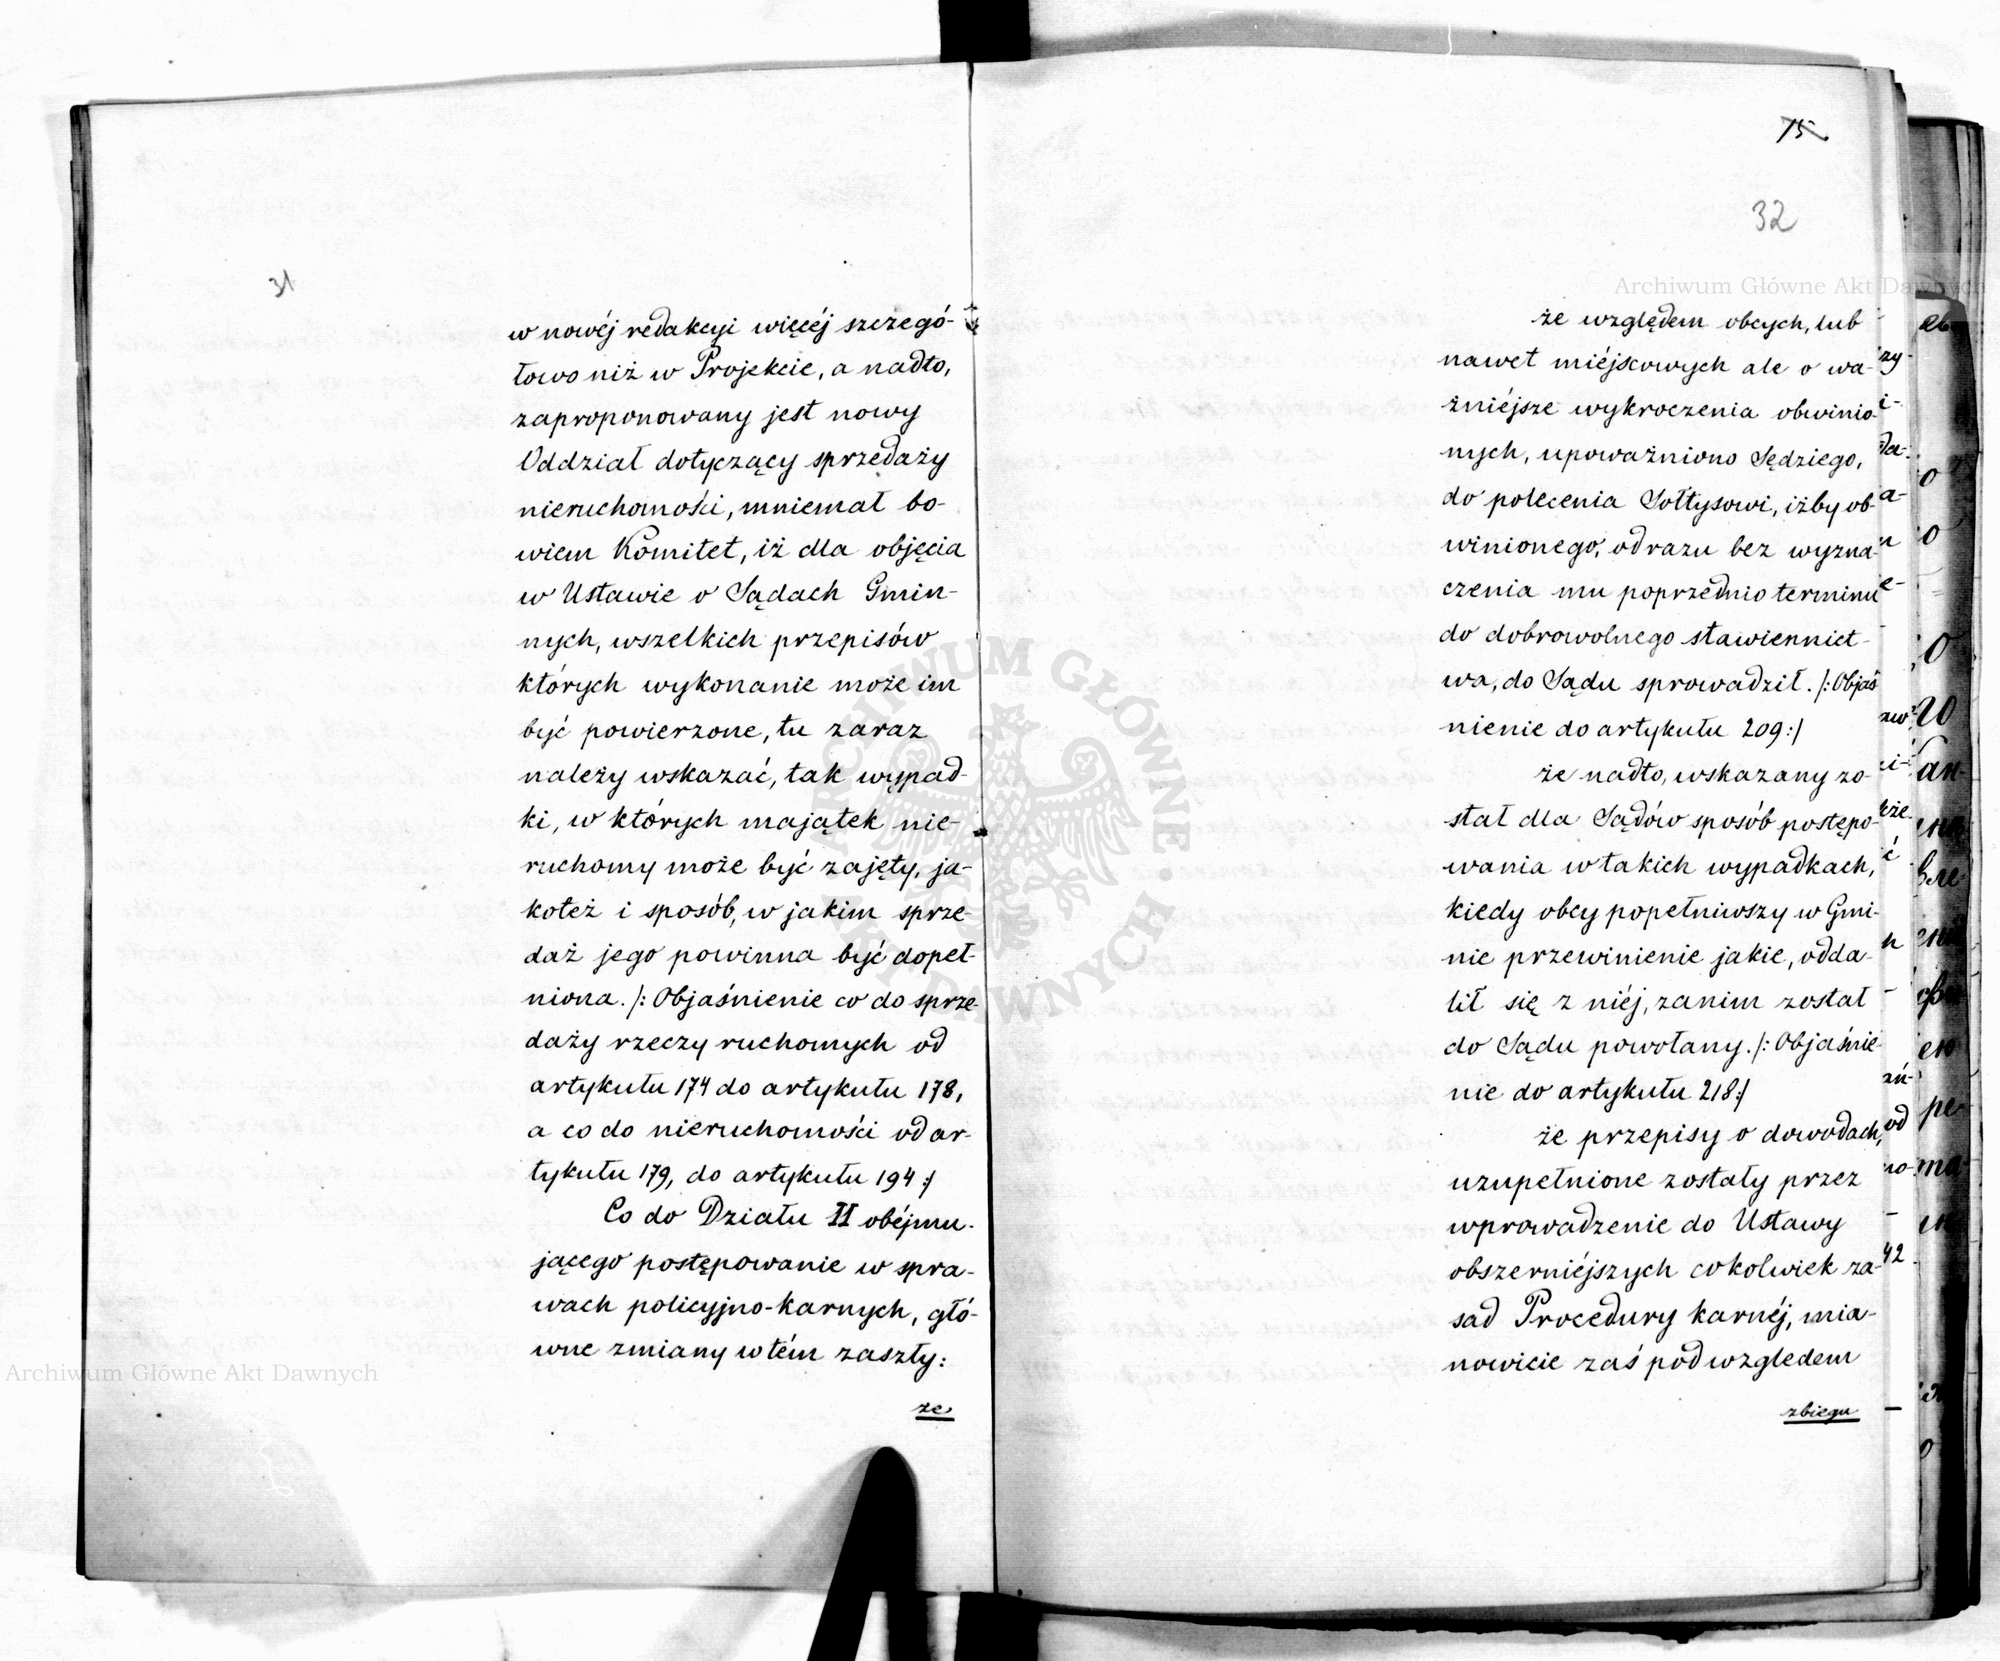 31
w nowéj redakcyi więcéj szczegó-
łowo niż w Projekcie, a nadto,
zaproponowany jest nowy
Oddział dotyczący sprzedaży
nieruchomości, mniemał bo-
wiem Komitet, iż dla objęcia
w Ustawie o Sądach Gmin-
nych, wszelkich przepisów
których wykonanie może im
być powierzone, tu zaraz
należy wskazać, tak wypad-
ki, w których majątek nie-
ruchomy może być zajęty, ja-
koteż i sposób, w jakim sprze-
daż jego powinna być dopeł-
niona. /: Objaśnienie co do sprze-
daży rzeczy ruchomych od
artykułu 174 do artykułu 178,
a co do nieruchomości od ar-
tykułu 179, do artykułu 194 :/
Co do Działu II obéjmu-
jącego postępowanie w spra-
wach policyjno-karnych, głó-
wne zmiany w tém zaszły:
że
75
32
że względem obcych, lub
nawet miéjscowych ale o wa-
żniéjsze wykroczenia obwinio-
nych, upoważniono Sędziego,
do polecenia Sołtysowi, iżby ob-
winionego, odrazu bez wyzna-
czenia mu poprzednio terminu
do dobrowolnego stawiennict-
wa, do Sądu sprowadził. /: Objaś
nienie do artykułu 209 :/
że nadto, wskazany zo-
stał dla Sądów sposób postępo-
wania w takich wypadkach,
kiedy obcy popełniwszy w Gmi-
nie przewinienie jakie, odda-
lił się z niéj, zanim został
do Sądu powołany. /: Objaśnie-
nie do artykułu 218 :/
że przepisy o dowodach,
uzupełnione zostały przez
wprowadzenie do Ustawy
obszerniéjszych cokolwiek za-
sad Procedury karnéj, mia-
nowicie zaś pod względem
zbiegu
Archiwum Główne Akt Dawnych
Archiwum Główne Akt Dawnych
ARCHIWUM GŁÓWNE AKT DAWNYCH